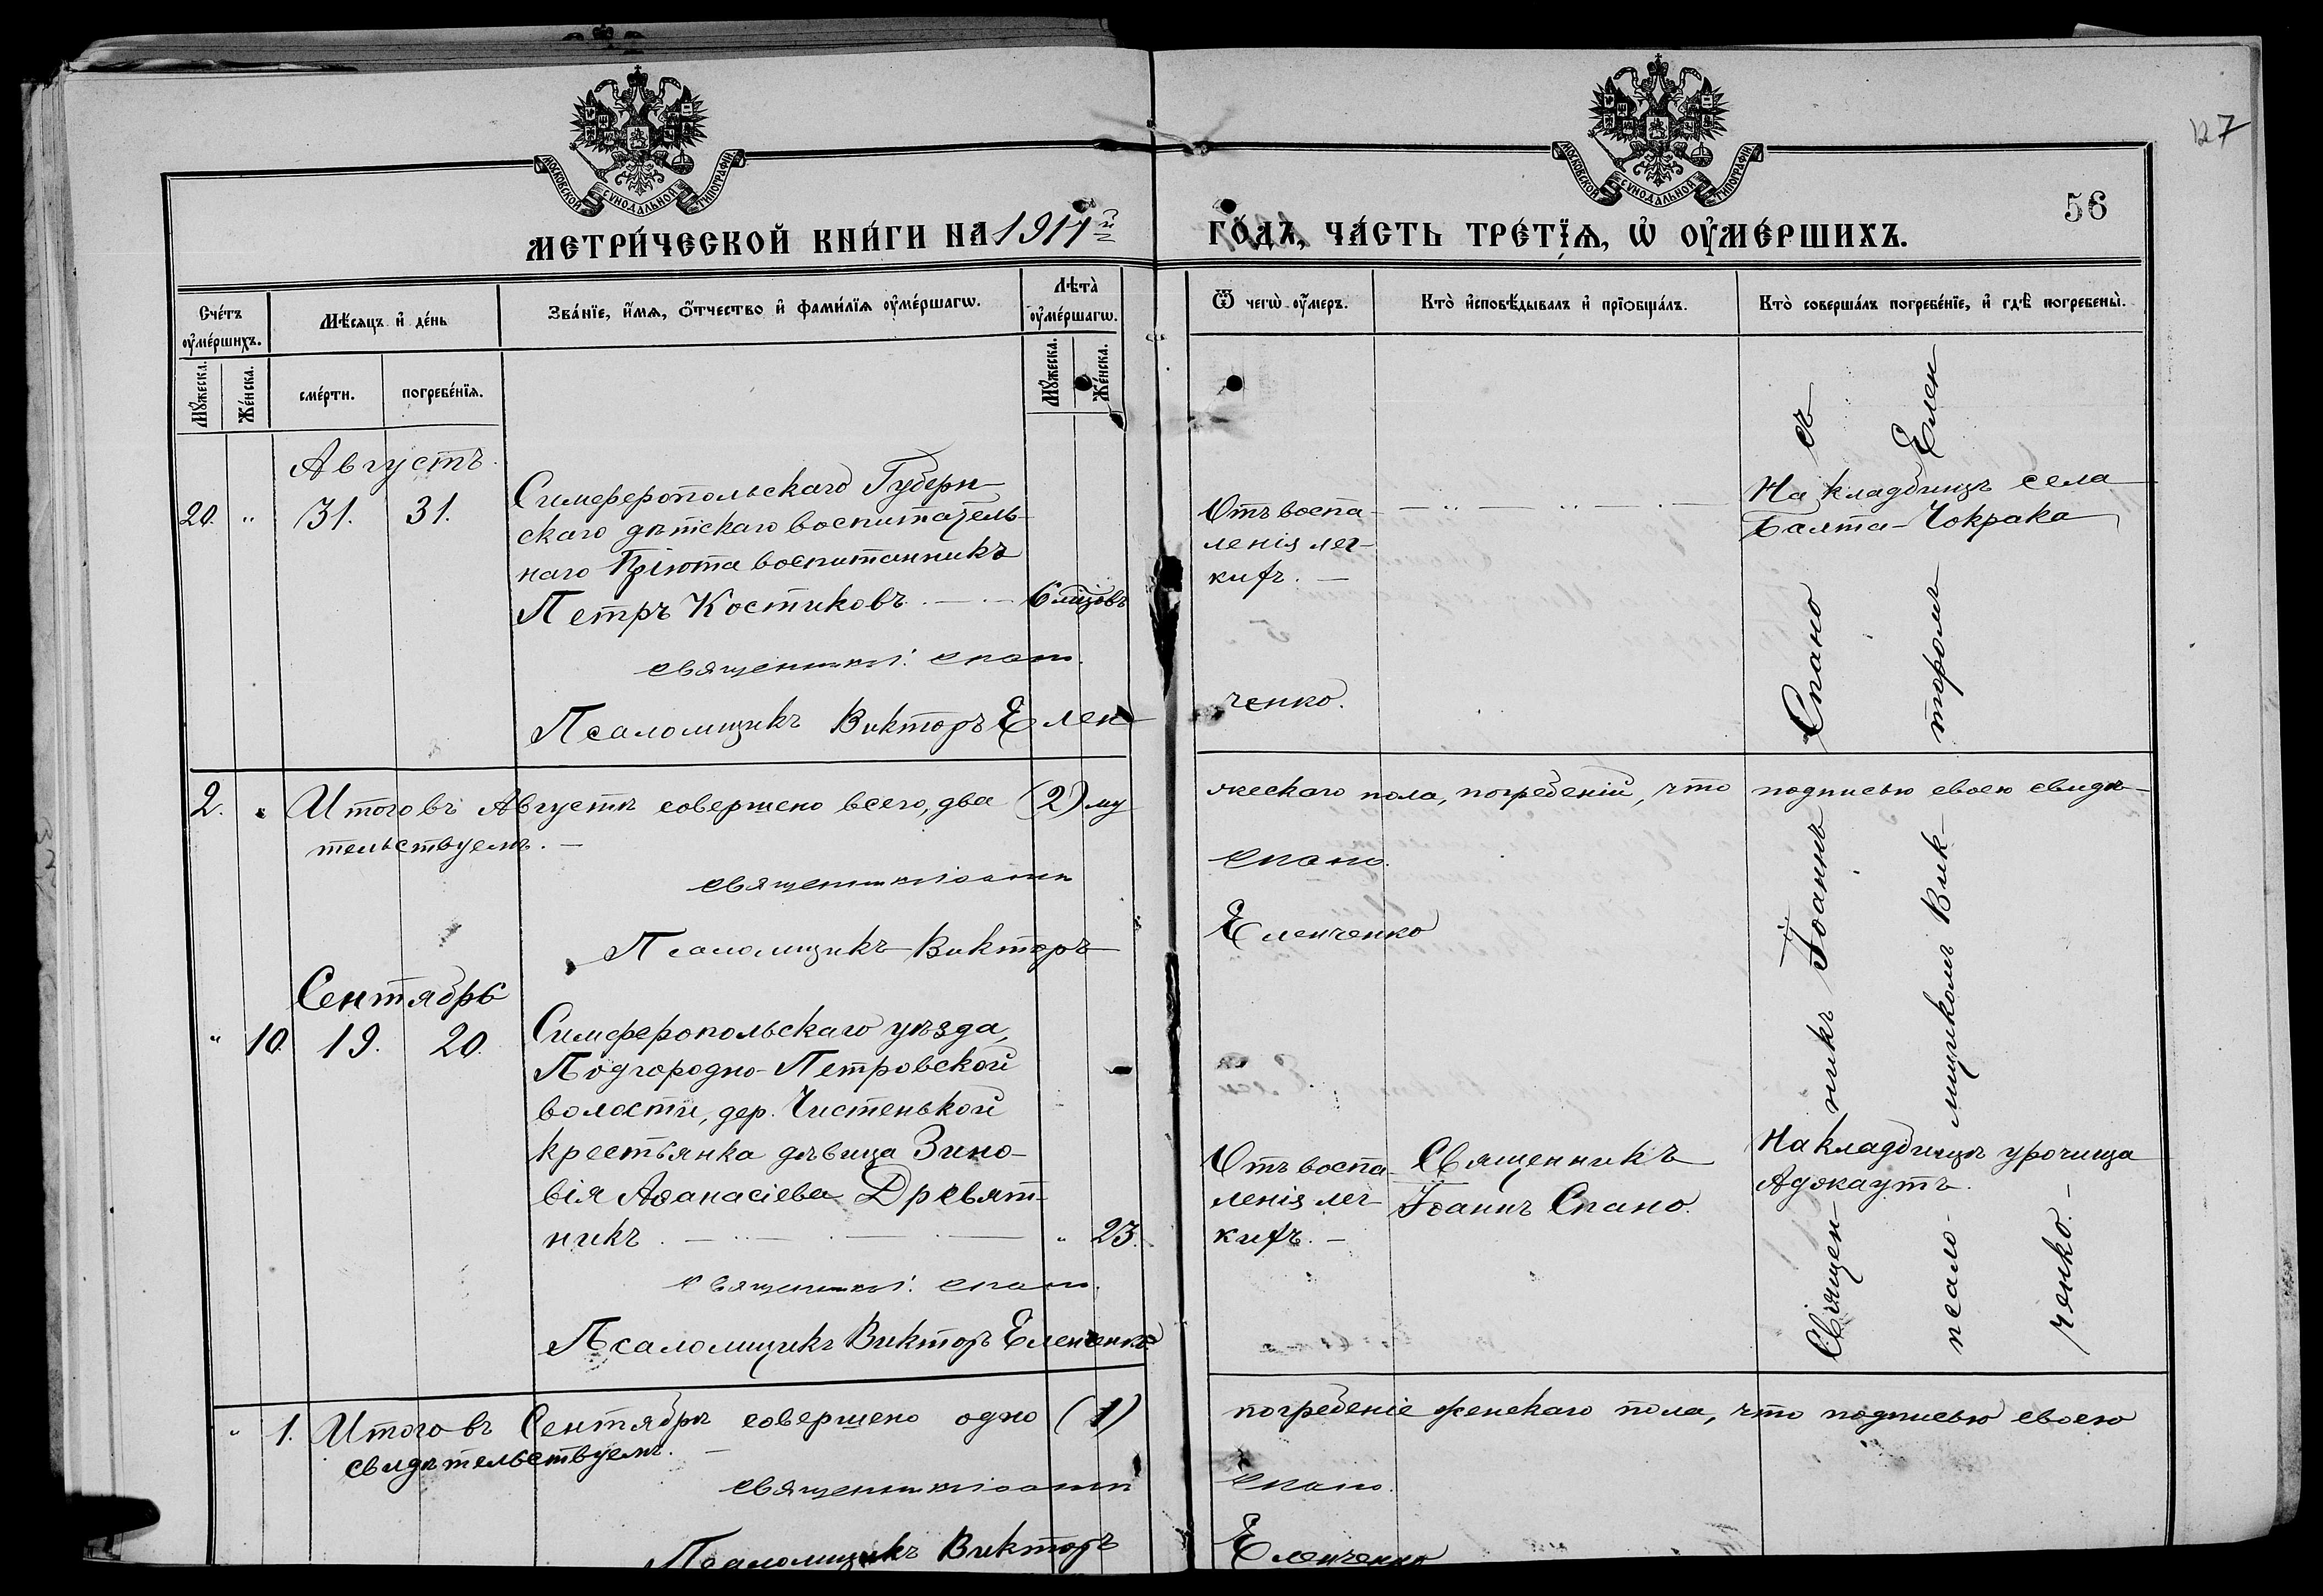 127
МОСКОВСКОЙ СУНОДАЛЬНОЙ ТИПОГРАФІИ.
МОСКОВСКОЙ СУНОДАЛЬНОЙ ТИПОГРАФІИ.
56
МЕТРИ́ЧЕСКОЙ КНИ́ГИ НА 1917й ГО́ДЪ, ЧА́СТЬ ТРЕ́ТЇѦ, Ѡ҆ ОУ҆МЕ́РШИХЪ.
Сче́тъ
оу҆ме́ршихъ.
Мꙋ́жеска.
Же́нска.
Мѣ́сяцъ и҆ де́нь
сме́рти.
погребе́нїѧ.
Зва́нїе, и҆́мѧ, ѻ҆́тчество и҆ фами́лїѧ оу҆ме́ршагѡ.
Лѣта̀
оу҆ме́ршагѡ.
Мꙋ́жеска.
Же́нска.
Ѿ чегѡ̀ оу҆́меръ.
Кто̀ и҆сповѣ́дывалъ и҆ прїѻбща́лъ.
Кто̀ соверша́лъ погребе́нїе, и҆ гдѣ̀ погребены̀.
Августъ.
20. " 31. 31.
Симферопольскаго Губерн-
скаго дѣтскаго воспитатель-
наго Пріюта воспитанникъ
Петръ Костиковъ. — 6 мцовъ
Отъ воспа-
ленія лег-
кихъ. —
На кладбищѣ села
Баята-Чокрака
священникъ І. Спано.
Псаломщикъ Викторъ Елен-
ченко.
2. " Итого въ Августѣ совершено всего, два (2) му
жескаго пола, погребеній, что подписью своею свидѣ-
тельствуемъ. —
священникъ Іоаннъ
Спано.
Псаломщикъ Викторъ
Еленченко
Сентябрь
" 10. 19. 20.
Симферопольскаго уѣзда,
Подгородно-Петровской
волости, дер. Чистенькой
крестьянка дѣвица Зино-
вія Аѳанасіева Древят-
никъ. — " 23.
Отъ воспа-
ленія лег-
кихъ. —
Священникъ
Іоаннъ Спано.
На кладбищѣ урочища
Аджкаутъ.
священникъ І. Спано.
Псаломщикъ Викторъ Еленченко
Священ-
никъ Іоаннъ
Спано
съ
псало-
мщикомъ Вик-
торомъ
Елен
ченко. —
" 1. Итого въ Сентябрѣ совершено одно (1)
погребеніе женскаго пола, что подписью своею
свидѣтельствуемъ. —
священникъ Іоаннъ
Спано.
Псаломщикъ Викторъ
Еленченко